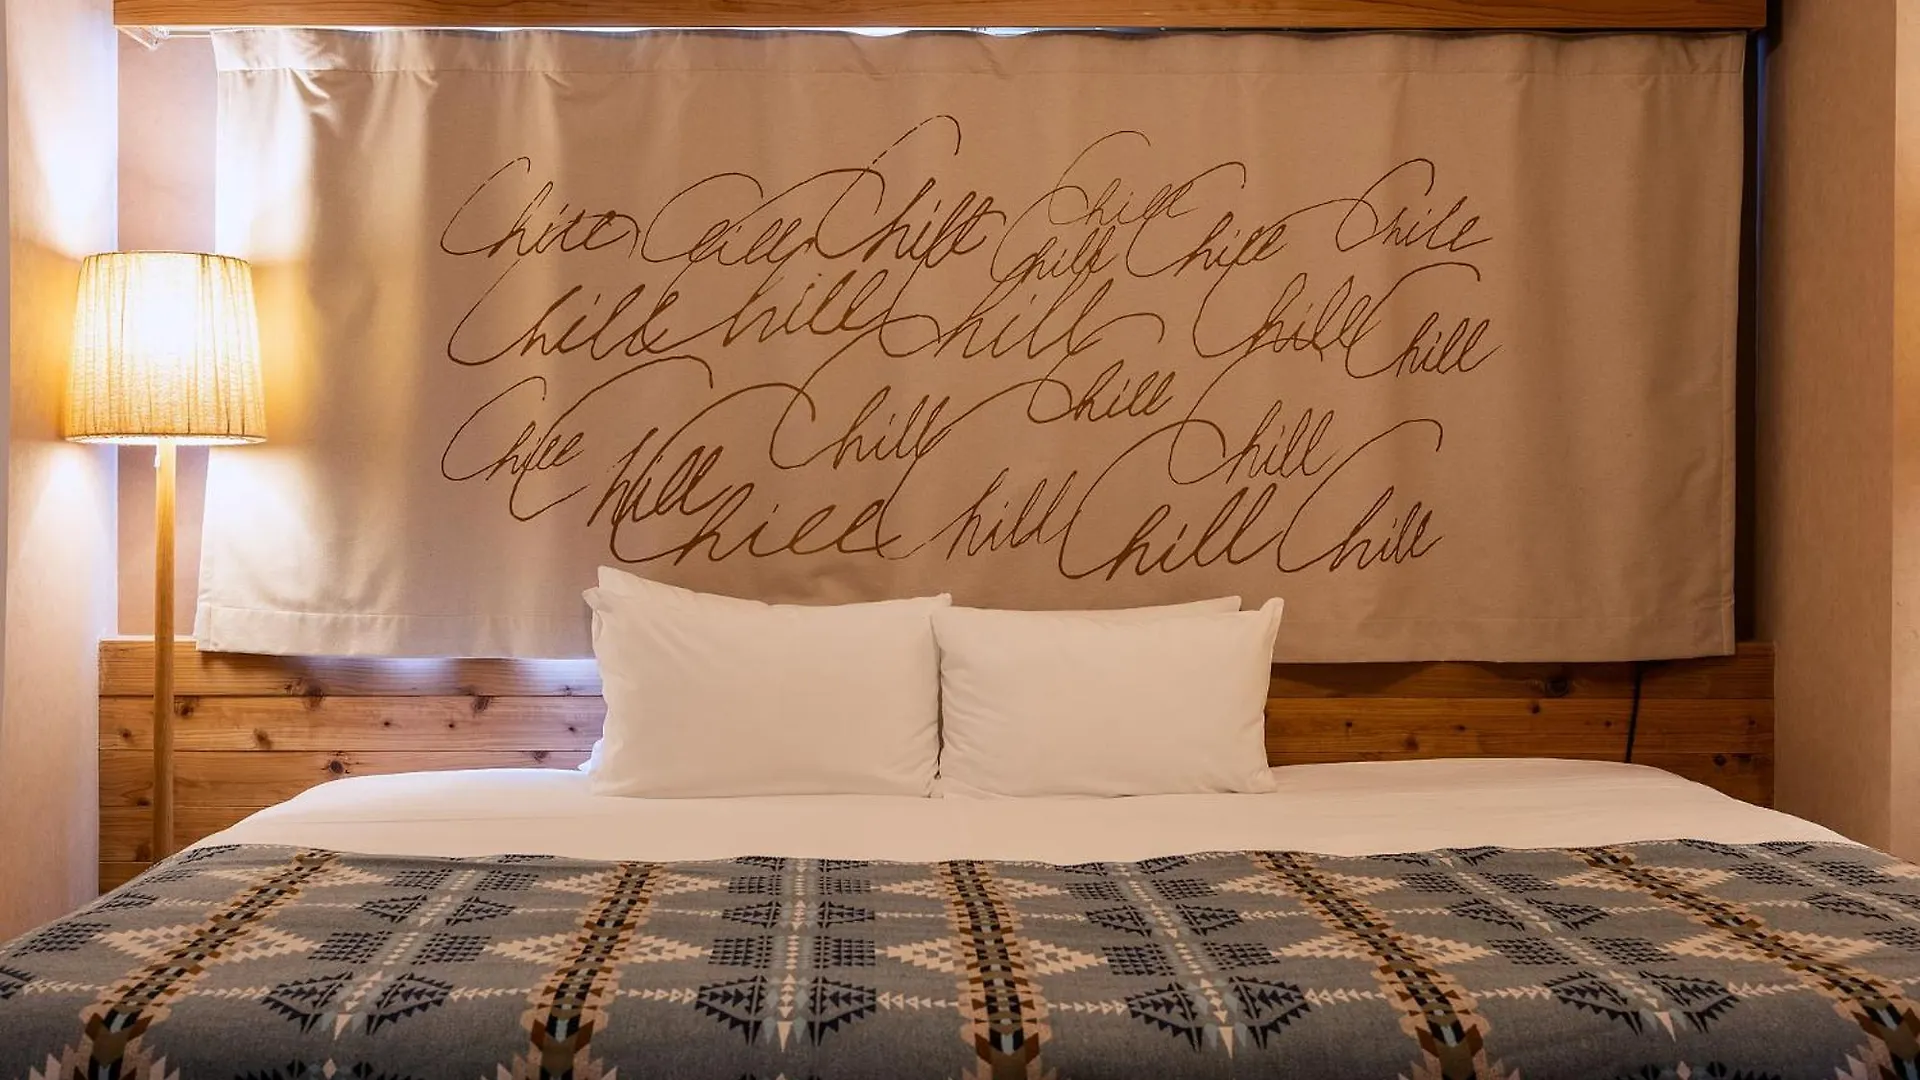 Chill Chill Chill Chill Chill Chill Chill
Chill Chill Chill Chill Chill
Chill Chill Chill Chill Chill
Chill Chill Chill Chill